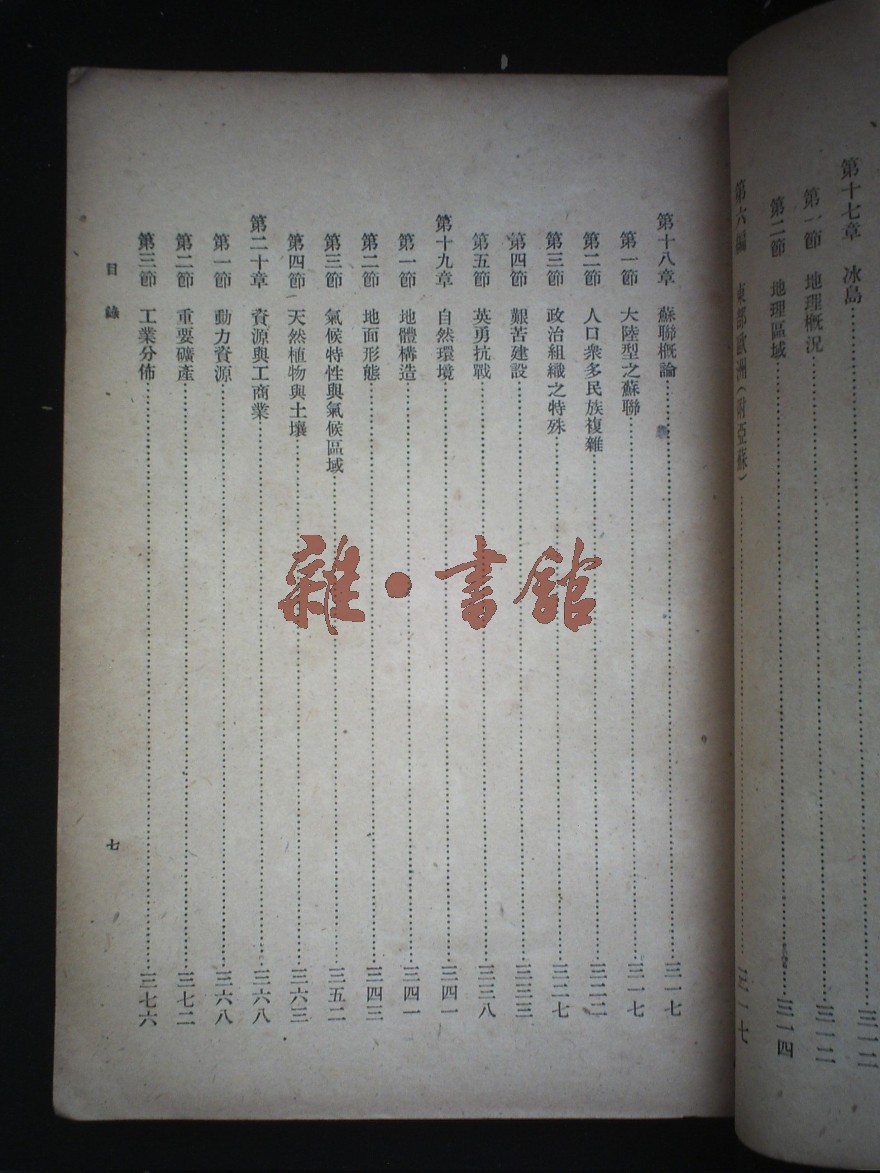 第十七章 冰島……三一二
第一節 地理概況……三一二
第二節 地理區域……三一四
第六編 東部歐洲(附亞蘇)……三一七
第十八章 蘇聯概論……三一七
第一節 大陸型之蘇聯……三一七
第二節 人口衆多民族複雜……三二二
第三節 政治組織之特殊……三二七
第四節 艱苦建設……三三三
第五節 英勇抗戰……三三八
第十九章 自然環境……三四一
第一節 地體構造……三四一
第二節 地面形態……三四三
第三節 氣候特性與氣候區域……三五二
第四節 天然植物與土壤……三六三
第二十章 資源與工商業……三六八
第一節 動力資源……三六八
第二節 重要礦產……三七二
第三節 工業分佈……三七六
目錄 七
雜·書館